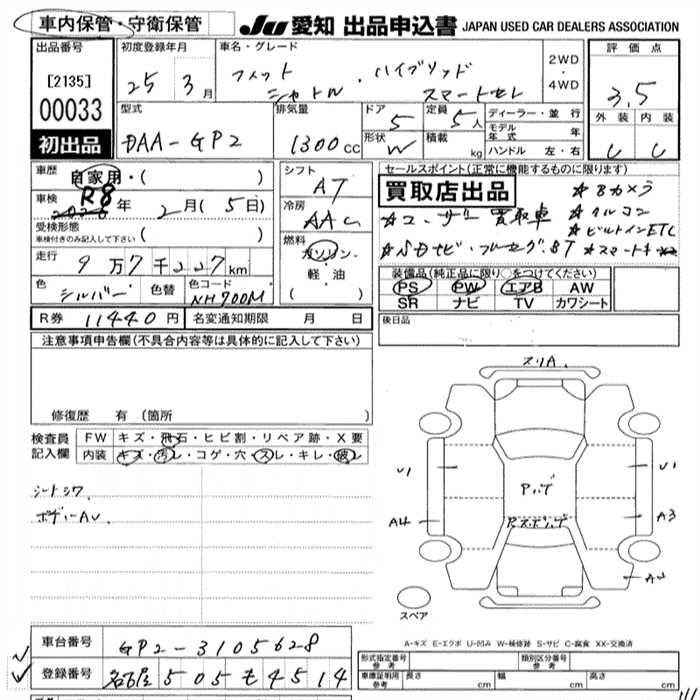 車内保管・守衛保管 JU 愛知 出品申込書 JAPAN USED CAR DEALERS ASSOCIATION
出品番号 [2135] 00033 初出品
初度登録年月 25 3月
車名・グレード フィット シャトル ・ハイブリッド スマートセレ
2WD ・ 4WD
評価点 3.5
外装 内装
C C
型式 DAA-GP2
排気量 1300cc
ドア 5 定員 5人
形状 W 積載 kg
ディーラー・並行
モデル年式 年
ハンドル 左・右
車歴 自家用・( )
車検 R8 年 2月(5日)
受検形態 車検付きのみ記入して下さい ( )
走行 9万7千227km
色 シルバー 色替 色コード NH700M
シフト AT
冷房 AAC
燃料 ガソリン・軽油 ( )
セールスポイント(正常に機能するものに限ります)
買取店出品
☆ユーザー買取車
☆SDナビ・フルセグ・BT
☆Bカメラ
☆クルコン
☆ビルトインETC
☆スマートキー
装備品(純正品に限り○をつけてください)
PS PW エアB AW
SR ナビ TV カワシート
後日品
R券 11440円 名変通知期限 月 日
注意事項申告欄(不具合内容等は具体的に記入して下さい)
修復歴 有 (箇所 )
検査員記入欄
FW キズ・飛石・ヒビ割・リペア跡・X要
内装 キズ・汚レ・コゲ・穴・スレ・キレ・破レ
シートシワ
ボディーAU
スリA
U1 U1
Pハゲ
A4 A3
スペア
A-キズ E-エクボ U-凹み W-補修跡 S-サビ C-腐食 XX-交換済
車台番号 GP2-3105628
登録番号 名古屋 505 も 4514
形式指定番号 参考 類別区分番号 参考
車庫証明用参考 長さ cm 幅 cm 高さ cm